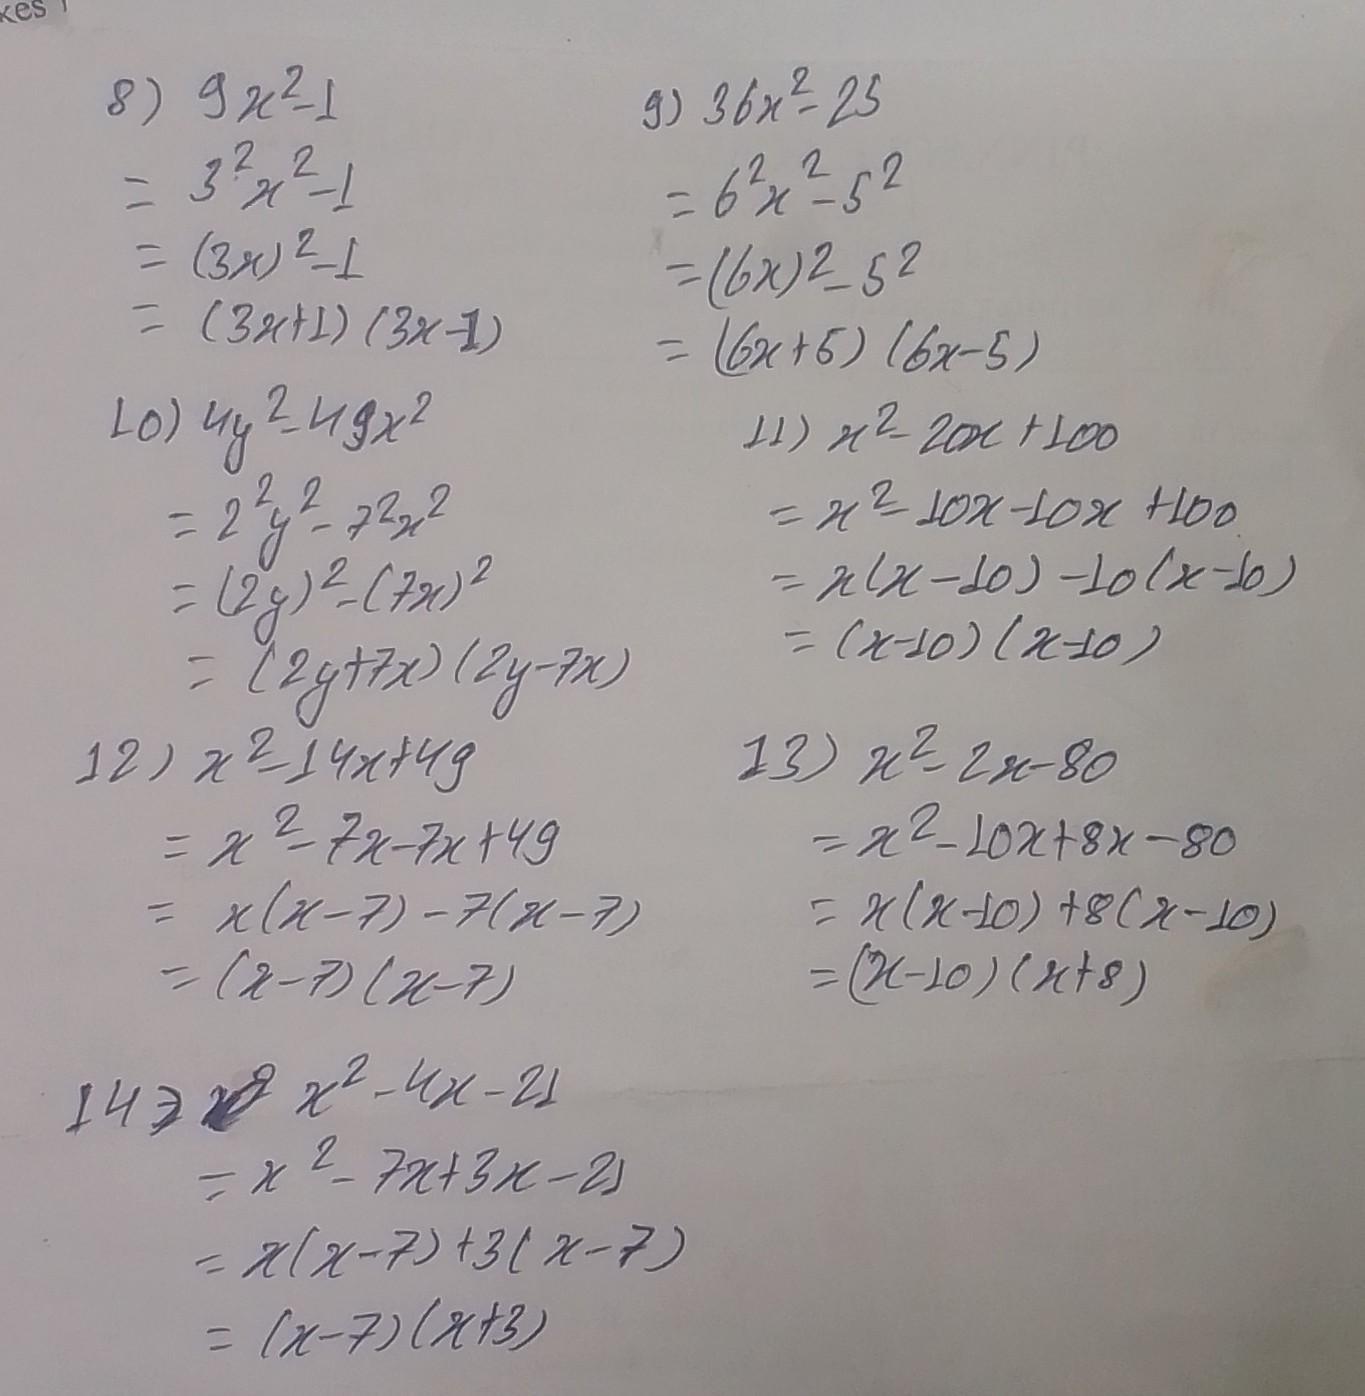 kes
8) 9x²-1
= 3²x²-1
= (3x)²-1
= (3x+1) (3x-1)
9) 36x²-25
= 6²x²-5²
= (6x)²-5²
= (6x+5) (6x-5)
10) 4y²-49x²
= 2²y²-7²x²
= (2y)²-(7x)²
= (2y+7x) (2y-7x)
11) x²-20x+100
= x²-10x-10x+100
= x(x-10)-10(x-10)
= (x-10) (x-10)
12) x²-14x+49
= x²-7x-7x+49
= x(x-7)-7(x-7)
= (x-7) (x-7)
13) x²-2x-80
= x²-10x+8x-80
= x(x-10)+8(x-10)
= (x-10) (x+8)
14) x²-4x-21
= x²-7x+3x-21
= x(x-7)+3(x-7)
= (x-7) (x+3)